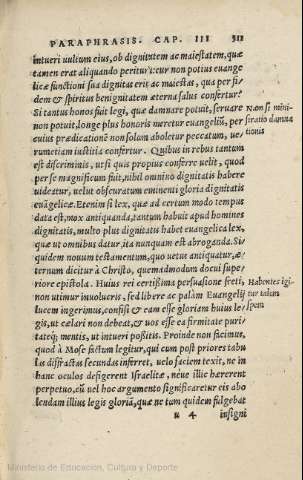 PARAPHRASIS. CAP. III 311
intueri uultum eius, ob dignitatem ac maiestatem, quæ
tamen erat aliquando peritura: cur non potius euange
licæ functioni sua dignitas erit ac maiestas, qua per fi/
dem & spiritus benignitatem æterna salus confertur?
Si tantus honos fuit legi, quæ damnare potuit, seruare
non potuit, longe plus honoris meretur euangeliũ, per
cuius prædicationẽ non solum aboletur peccatum, ue/
rumetiam iustitia confertur. Quibus in rebus tantum
est discriminis, ut si quis propius conferre uelit, quod
per se magnificum fuit, nihil omnino dignitatis habere
uideatur, uelut obscuratum eminenti gloria dignitatis
euãgelicæ. Etenim si lex, quæ ad certum modo tempus
data est, mox antiquanda, tantum habuit apud homines
dignitatis, multo plus dignitatis habet euangelica lex,
quæ ut omnibus datur, ita nunquam est abroganda. Si/
quidem nouum testamentum, quo uetus antiquatur, æ/
ternum dicitur à Christo, quemadmodum docui supe/
riore epistola. Huius rei certissima persuasione freti,
non utimur inuolucris, sed libere ac palàm Euangelij
lucem ingerimus, confisi & eam esse gloriam huius le/
gis, ut cælari non debeat, & uos esse ea firmitate puri/
tateq́; mentis, ut intueri positis. Proinde non facimus,
quod à Mose factum legitur, qui cum post priores tabu
las diffractas secundas inferret, uelo faciem texit, ne in
hanc oculos defigerent Israelitæ, neue illic hærerent
perpetuo, cũ uel hoc argumento significaretur eis abo
lendam illius legis gloriã, quæ ne tum quidem fulgebat
u 4 insigni
Nam si mini-
stratio damna
tionis
Habentes igi-
tur talem
spem
Ministerio de Educación, Cultura y Deporte